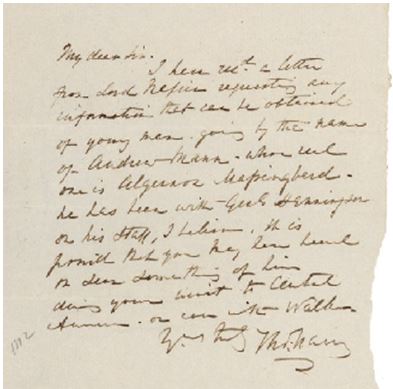 My dear Sir.
I have recd. a letter
from Lord Napier requesting any
information that can be obtained
of young man going by the name
of Andrew Mann - whose real
one is Algernon Massingberd -
he has been with Genl Henningson
on his Staff, I believe, it is
possible that you may have heard
or seen something of him
during your visit to Central
America - or even with Walker
Yrs truly Tho.